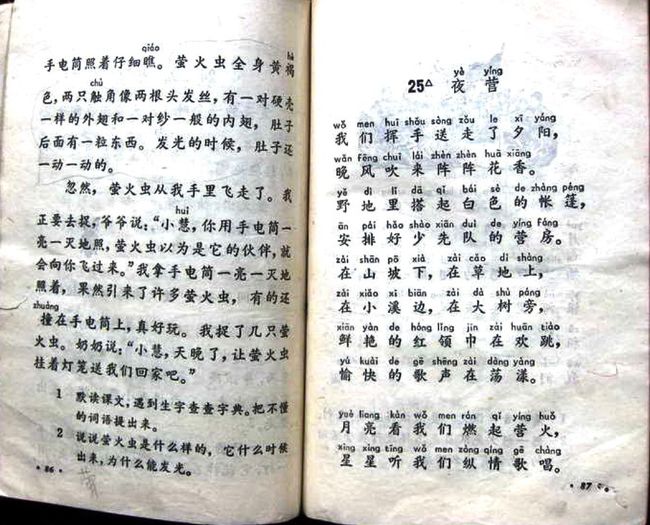 qiáo
手电筒照着仔细瞧。萤火虫全身黄褐
chù
色,两只触角像两根头发丝,有一对硬壳
一样的外翅和一对纱一般的内翅,肚子
后面有一粒东西。发光的时候,肚子还
一动一动的。
忽然,萤火虫从我手里飞走了。我
huì
正要去捉,爷爷说:“小慧,你用手电筒一
亮一灭地照,萤火虫以为是它的伙伴,就
会向你飞过来。”我拿手电筒一亮一灭地
照着,果然引来了许多萤火虫,有的还
zhuàng
撞在手电筒上,真好玩。我捉了几只萤
火虫。奶奶说:“小慧,天晚了,让萤火虫
挂着灯笼送我们回家吧。”
1 默读课文,遇到生字查查字典。把不懂
的词语提出来。
2 说说萤火虫是什么样的,它什么时候
出来,为什么能发光。
·86·
yè yíng
25△ 夜营
wǒ men huī shǒu sòng zǒu le xī yáng
我们挥手送走了夕阳,
wǎn fēng chuī lái zhèn zhèn huā xiāng
晚风吹来阵阵花香。
yě dì lǐ dā qǐ bái sè de zhàng péng
野地里搭起白色的帐篷,
ān pái hǎo shào xiān duì de yíng fáng
安排好少先队的营房。
zài shān pō xià zài cǎo dì shàng
在山坡下,在草地上,
zài xiǎo xī biān zài dà shù páng
在小溪边,在大树旁,
xiān yàn de hóng lǐng jīn zài huān tiào
鲜艳的红领巾在欢跳,
yú kuài de gē shēng zài dàng yàng
愉快的歌声在荡漾。
yuè liang kàn wǒ men rán qǐ yíng huǒ
月亮看我们燃起营火,
xīng xing tīng wǒ men zòng qíng gē chàng
星星听我们纵情歌唱。
·87·